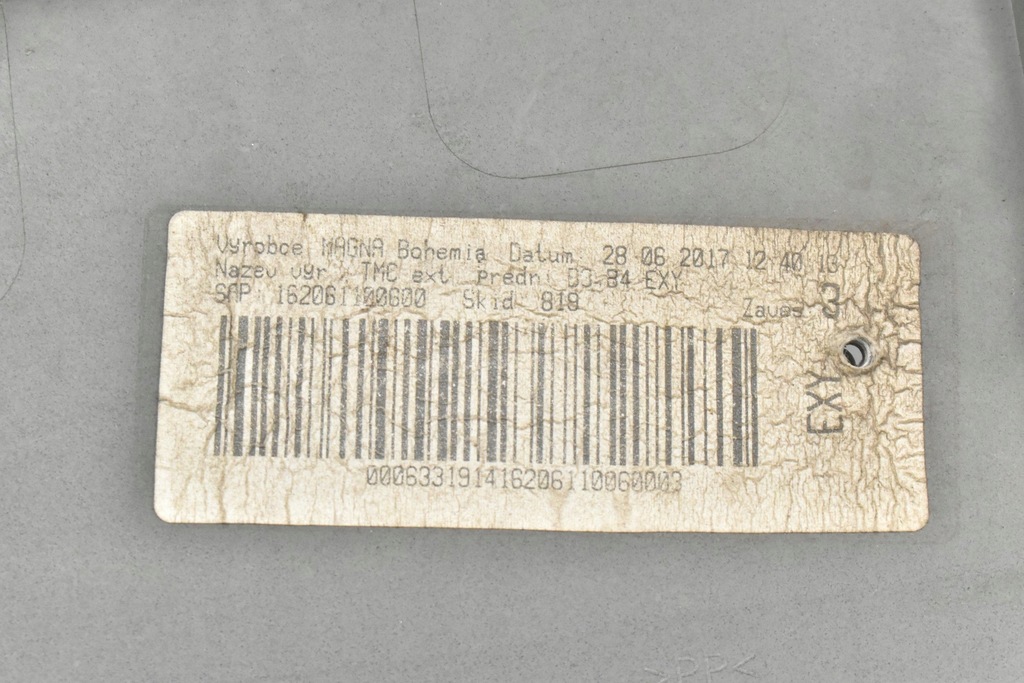 Vyrobce MAGNA Bohemia Datum 28 06 2017 12 40
Nazev vyr TMC ext predni D3-B4 EXY
SAP 162061100600 Skid 819
Zaves 3
EXY
0006331914162061100600 03
>PP<